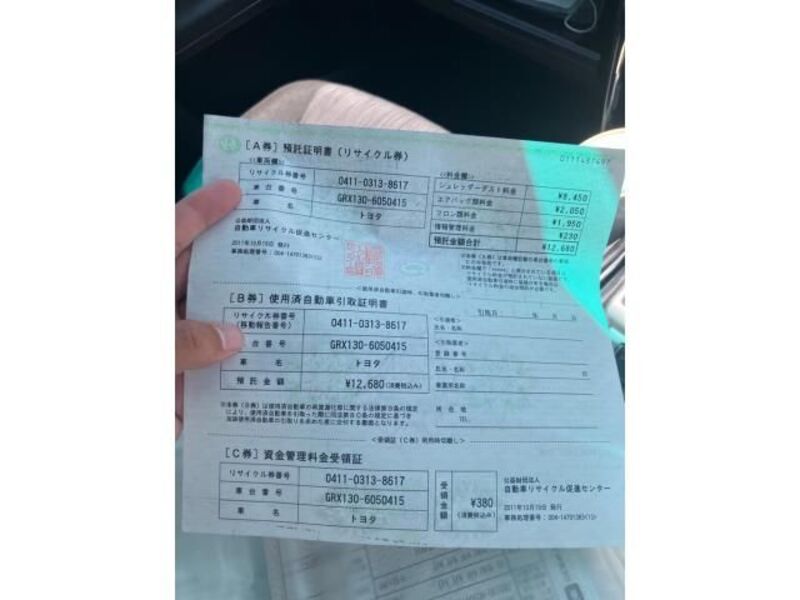 [A券] 預託証明書(リサイクル券)
0111487497
<車両欄>
リサイクル券番号 0411-0313-8617
車台番号 GRX130-6050415
車名 トヨタ
<料金欄>
シュレッダーダスト料金 ¥8,450
エアバッグ類料金 ¥2,050
フロン類料金 ¥1,950
情報管理料金 ¥230
預託金額合計 ¥12,680
公益財団法人
自動車リサイクル促進センター
[B券] 使用済自動車引取証明書
リサイクル券番号
(移動報告番号) 0411-0313-8617
台番号 GRX130-6050415
車名 トヨタ
預託金額 ¥12,680(消費税込み)
引取日: 年 月 日
<引取者>
氏名・名称
登録番号
氏名・名称
事業所名称
所在地
TEL
<受領証(C券)利用時切離し>
[C券] 資金管理料金受領証
リサイクル券番号 0411-0313-8617
車台番号 GRX130-6050415
車名 トヨタ
受領金額 ¥380
(消費税込み)
公益財団法人
自動車リサイクル促進センター